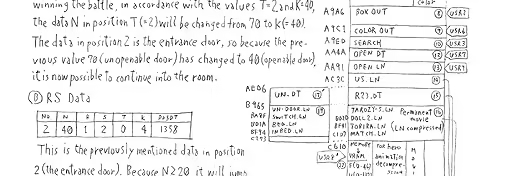 winning the battle, in accordance with the values T=2 and K=40,
the data N in position T (=2) will be changed from 70 to K(=40).
The data in position 2 is the entrance door, so because the pre-
vious value 70 (unopenable door) has changed to 40 (openable door),
it is now possible to continue into the room.
① RS Data
NO N B S T K DTSDT
2 40 1 2 0 4 1358
This is the previously mentioned data in position
2 (the entrance door). Because N≥20 it will jump
COLOR
A9A6 BOX OUT ⑧ USR2
A9C1 COLOR OUT ⑨ USR6
A9ED SEARCH ⑩ USR3
AA4A OPEN DT ⑬ USR9
AA91 OPEN LN
AC3C US. LN ⑭
AE06 UN. DT ⑰
R?3. DT ⑮
B465 UN-DOOR. LN ⑱
SWITCH. LN
BED. LN
INBED. LN
TAROZY-S. LN
DOLL 2. LN
TOBERA. LN
MATCH. LN
Permanent ⑯
movie
(LN compressed)
C610
USR8
MEMORY
↓
VRAM
FOR hero
animation
decompre-